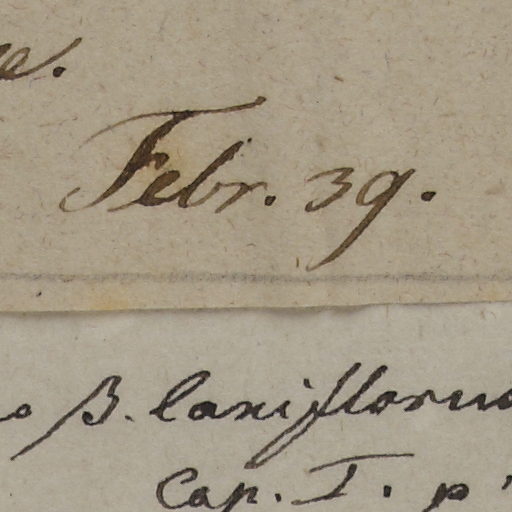 Febr. 39.
β. laxiflorus
Cap. I. p